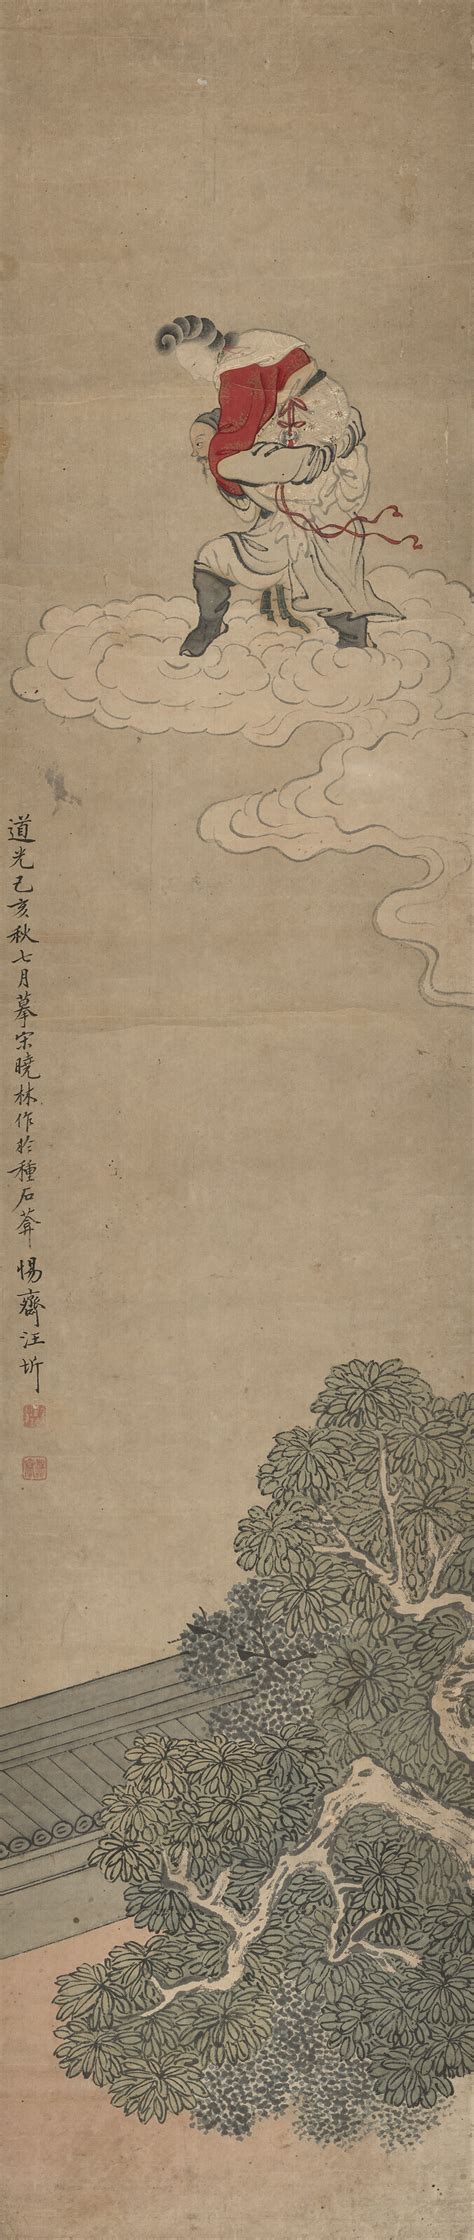 道光己亥秋七月摹宋曉林作於種石葊惕齋汪圻